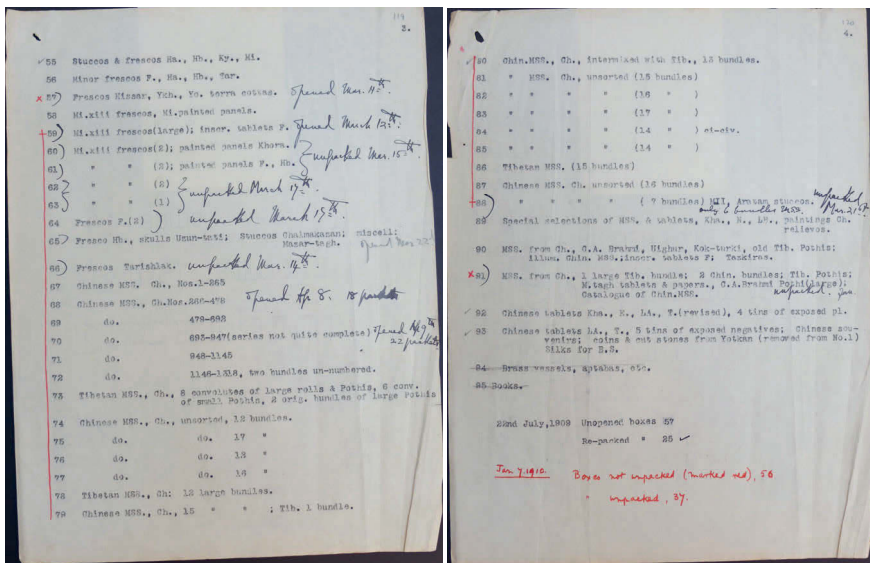 119
3.
55 Stuccos & frescos Ha., Hb., Ky., Mi.
56 Minor frescos F., Ha., Hb., Tar.
x 57) Frescos Kissar, Ykh., Yo. terra cottas. opened Mar. 11th.
58 Mi.xiii frescos, Mi.painted panels.
59) Mi.xiii frescos(large); inscr. tablets F. opened March 12th.
60) Mi.xiii frescos(2); painted panels Khora.
61) " " (2); painted panels F., Hb. unpacked Mar. 15th
62) " " (2)
63) " " (1) unpacked March 17th
64 Frescos F.(2) unpacked March 15th
65) Fresco Hb., skulls Uzun-tati; Stuccos Chalmakazan; miscell:
Mazar-tagh. opened Mar 22nd
66) Frescos Tarishlak. unpacked Mar. 14th
67 Chinese MSS., Ch, Nos.1-265
68 Chinese MSS., Ch.Nos.266-478 opened Ap 8. 18 packets
69 do. 479-692
70 do. 693-947(series not quite complete) opened Ap 9th
22 packets
71 do. 948-1145
72 do. 1146-1318, two bundles un-numbered.
73 Tibetan MSS., Ch., 8 convolutes of large rolls & Pothis, 6 conv.
of small Pothis, 2 orig. bundles of large Pothis
74 Chinese MSS., Ch., unsorted, 12 bundles.
75 do. do. 17 "
76 do. do. 13 "
77 do. do. 16 "
78 Tibetan MSS., Ch: 12 large bundles.
79 Chinese MSS., Ch., 15 " " ; Tib. 1 bundle.
120
4.
80 Chin.MSS., Ch., intermixed with Tib., 13 bundles.
81 " MSS. Ch., unsorted (15 bundles)
82 " " " " (16 " )
83 " " " " (17 " )
84 " " " " (14 " ) ci-civ.
85 " " " " (14 " )
86 Tibetan MSS. (15 bundles)
87 Chinese MSS. Ch. unsorted (16 bundles)
88) " " " " ( 7 bundles) MII, Aratam stuccos. unpacked
only 6 bundles MSS. Mar. 21st
89 Special selections of MSS. & tablets, Kha., N., LB., paintings Ch.
relievos.
90 MSS. from Ch., C.A. Brahmi, Uighur, Kok-turki, old Tib. Pothis;
illum. Chin. MSS.;inscr. tablets F; Tazkiras.
x 91) MSS. from Ch., 1 large Tib. bundle; 2 Chin. bundles; Tib. Pothis;
M.tagh tablets & papers., C.A.Brahmi Pothi(large);
Catalogue of Chin.MSS. unpacked. Jan.
92 Chinese tablets Kha., E., LA., T.(revised), 4 tins of exposed pl.
93 Chinese tablets LA., T., 5 tins of exposed negatives; Chinese sou-
venirs; coins & cut stones from Yotkan (removed from No.1)
Silks for E.S.
94 Brass vessels, aptabas, etc.
95 Books.
22nd July,1909 Unopened boxes 57
Re-packed " 25 ✓
Jan 7. 1910. Boxes not unpacked (marked red), 56
" unpacked, 37.